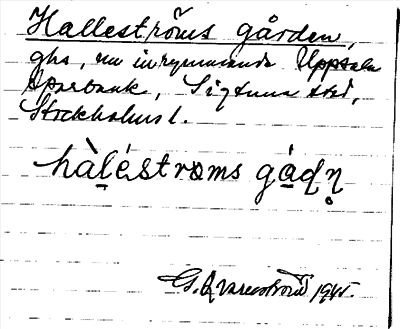 Halleströms gården,
ghs, nu inrymmande Uppsala
Sparbank, Sigtuna stad,
Stockholms l.
hàléstrøms gádn̥
G. Qvarnström 1945.